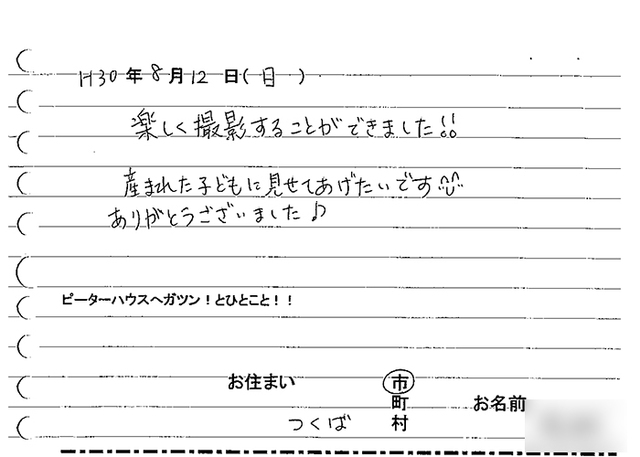 H30年8月12日(日)
楽しく撮影することができました!!
産まれた子どもに見せてあげたいです
ありがとうございました♪
ピーターハウスへガツン！とひとこと！！
お住まい 市
町 お名前
つくば 村